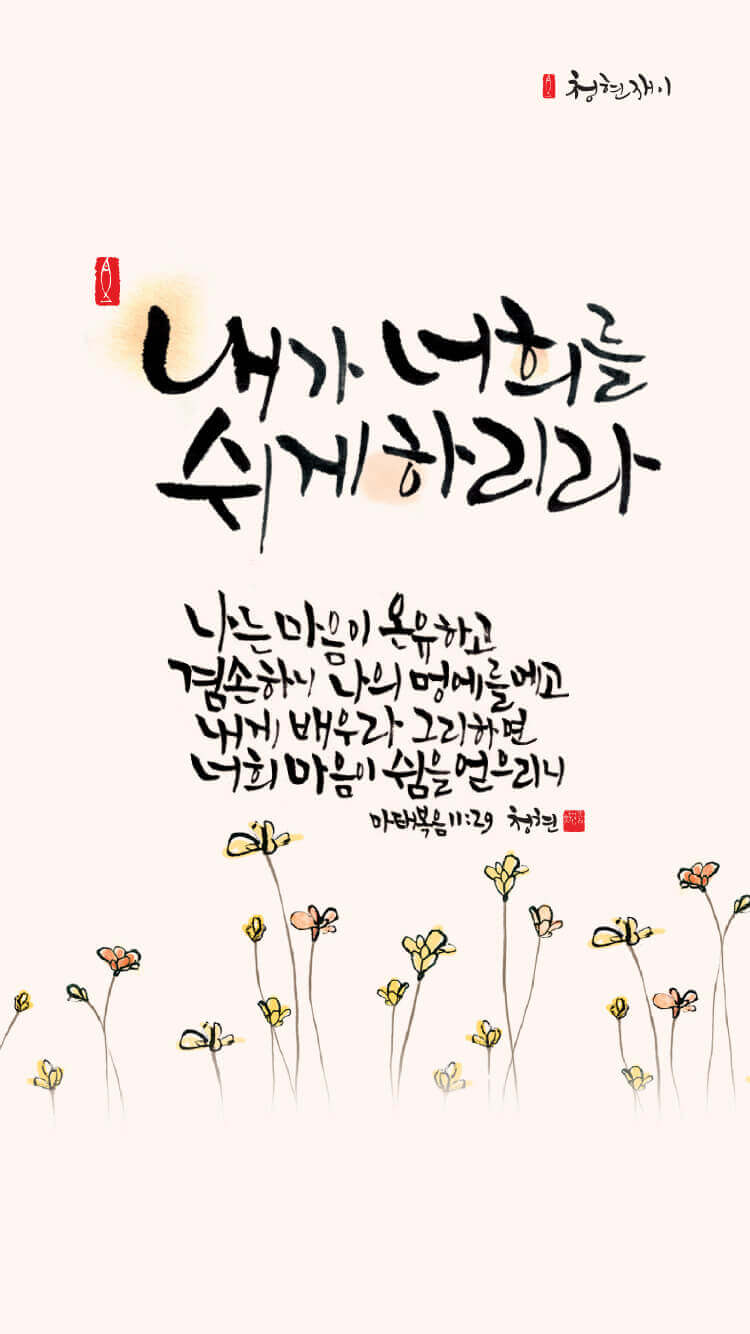 청현재이
내가 너희를
쉬게 하리라
나는 마음이 온유하고
겸손하니 나의 멍에를 메고
내게 배우라 그리하면
너희 마음이 쉼을 얻으리니
마태복음 11:29 청현